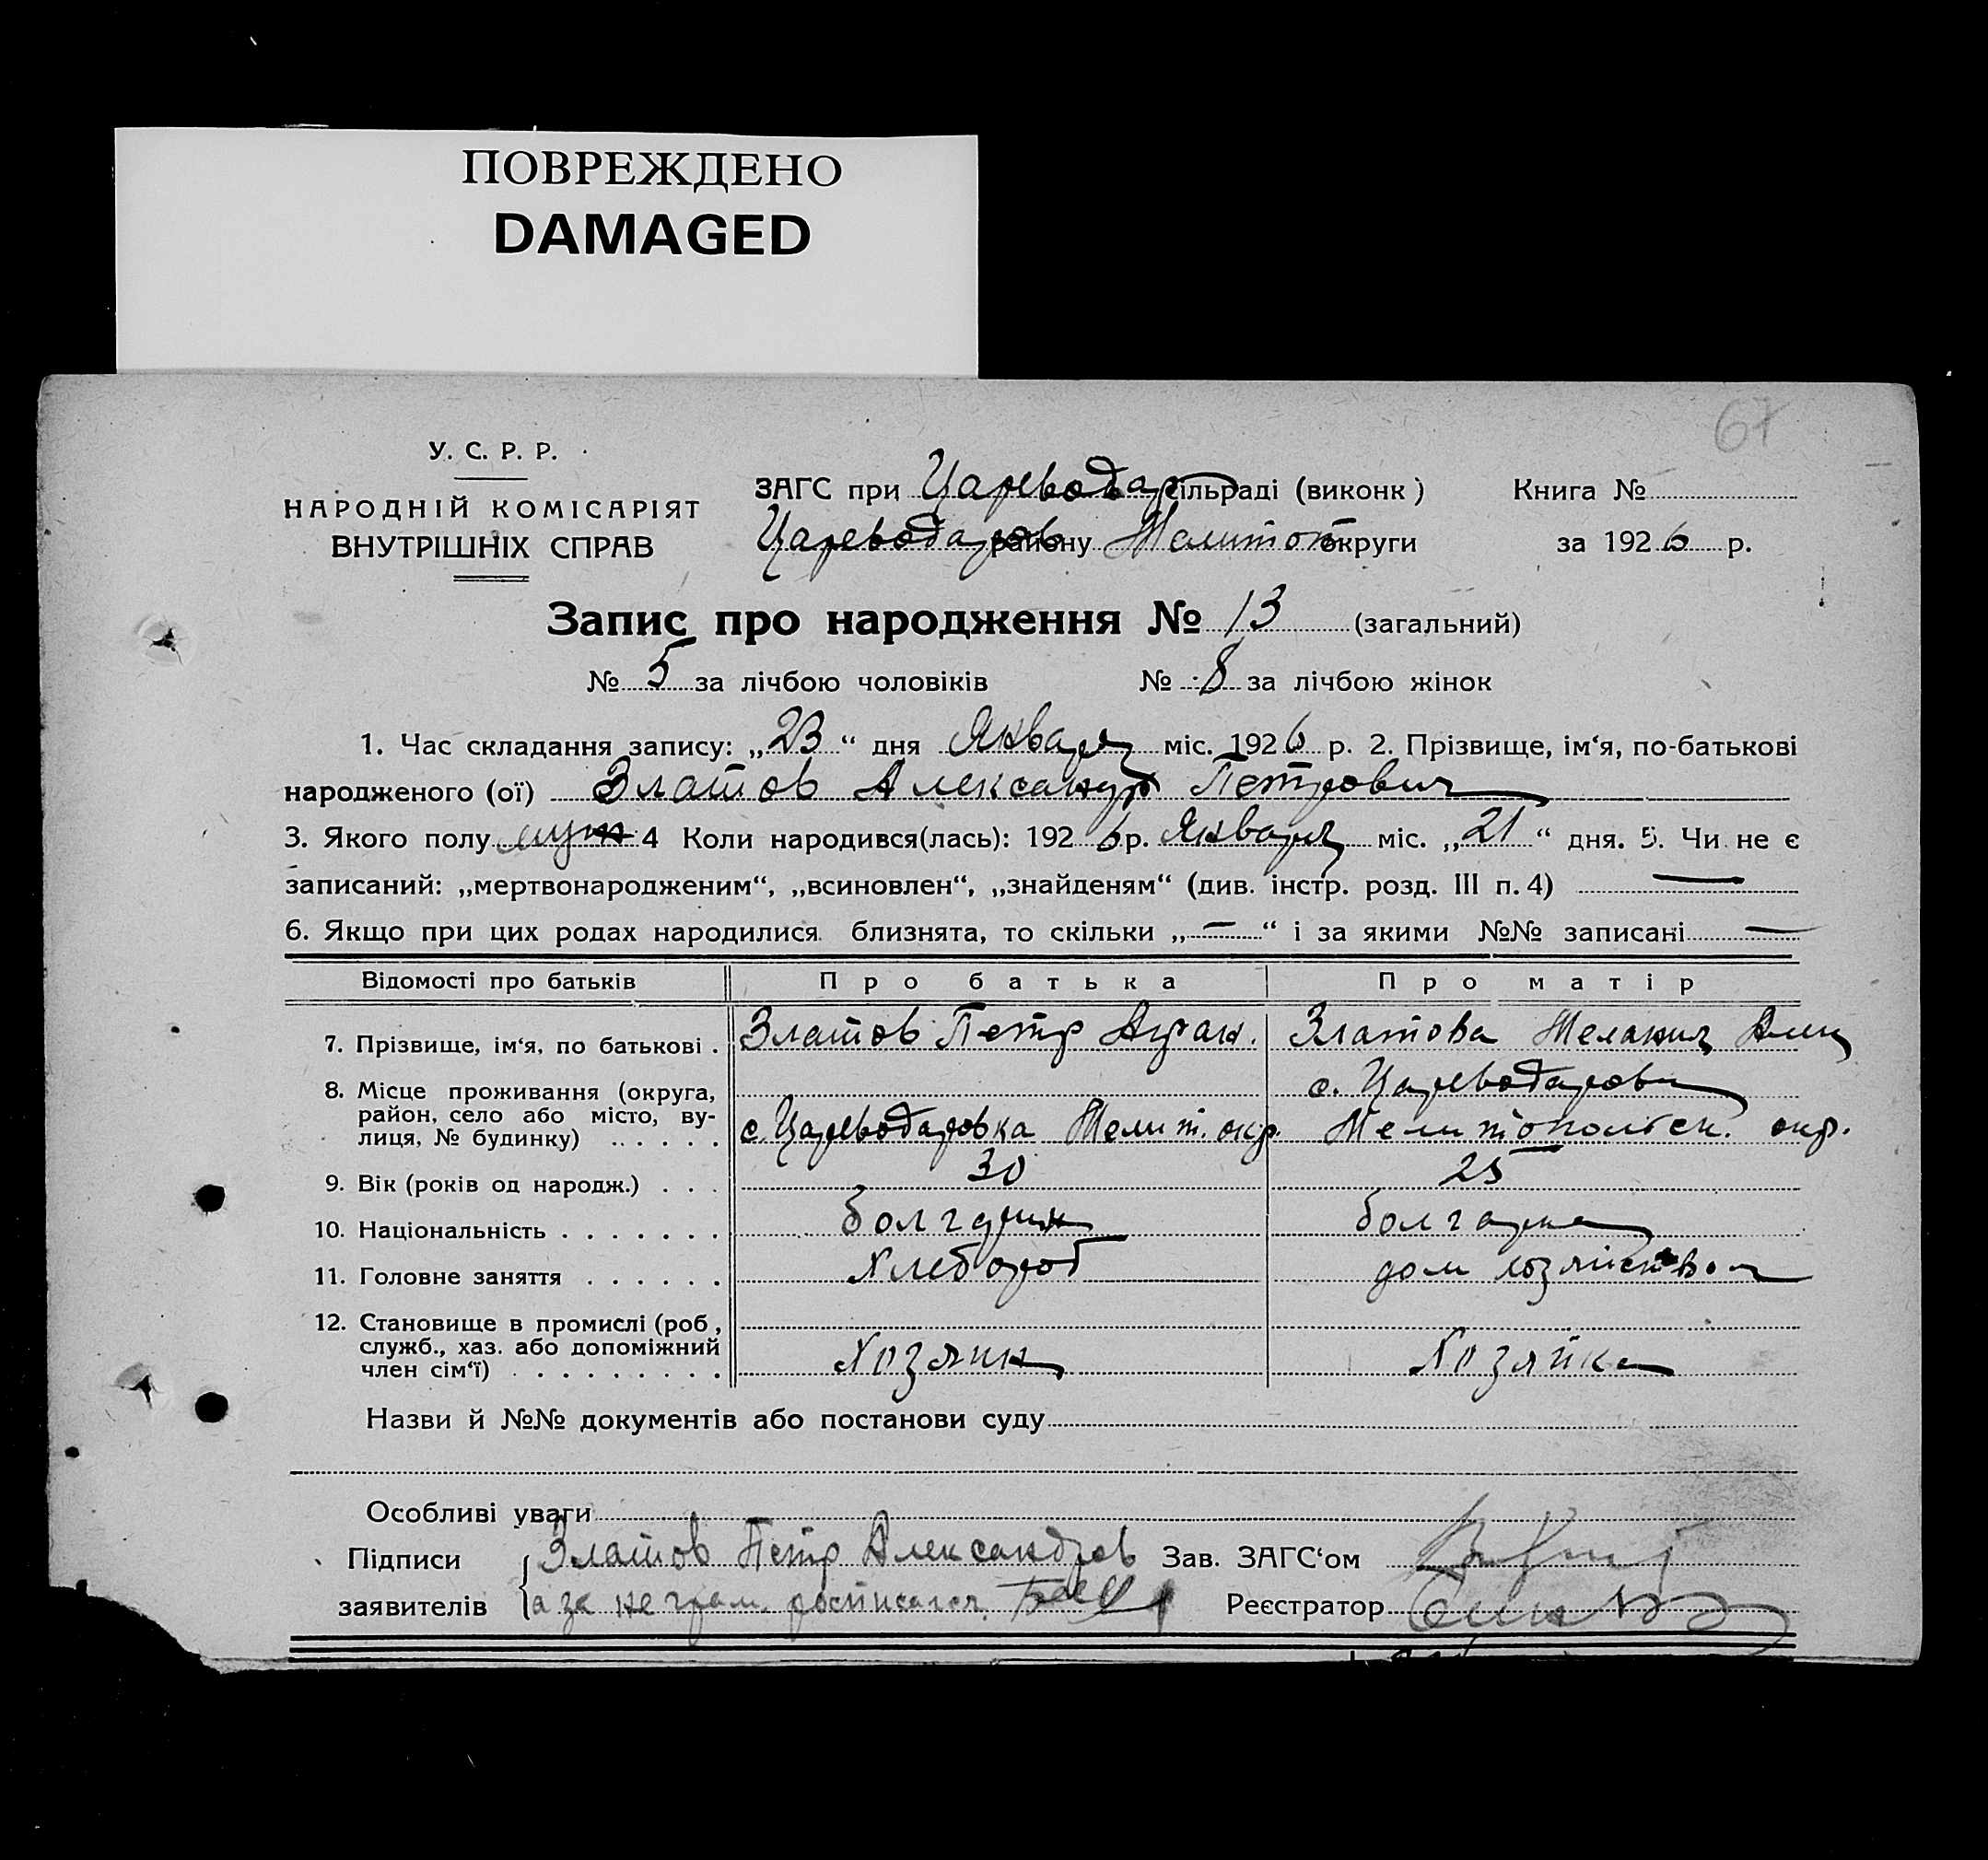 ПОВРЕЖДЕНО
DAMAGED
67
У. С. Р. Р.
НАРОДНІЙ КОМІСАРІЯТ
ВНУТРІШНІХ СПРАВ
ЗАГС при Цареводар сільраді (виконк) Книга №
Цареводаров району Мелитоп округи за 1926 р.
Запис про народження № 13 (загальний)
№ 5 за лічбою чоловіків № 8 за лічбою жінок
1. Час складання запису: „23“ дня Января міс. 1926 р. 2. Прізвище, ім‘я, по-батькові
народженого (ої) Златов Александр Петрович
3. Якого полу муж 4 Коли народився(лась): 1926 р. Января міс. „21“ дня. 5. Чи не є
записаний: „мертвонародженим“, „всиновлен“, „знайденям“ (див. інстр. розд. III п. 4) —
6. Якщо при цих родах народилися близнята, то скільки „—“ і за якими №№ записані —
Відомості про батьків Про батька Про матір
7. Прізвище, ім‘я, по батькові . Златов Петр Златова Мелания
8. Місце проживання (округа, с. Цареводаровка
район, село або місто, ву-
лиця, № будинку) . . . . . . с. Цареводаровка Мелит. окр. Мелитопольск. окр.
9. Вік (років од народж.) . . . 30 25
10. Національність . . . . . . . болгарин болгарка
11. Головне заняття . . . . . . Хлебороб дом хозяйством
12. Становище в промислі (роб,
служб., хаз. або допоміжний
член сім‘ї) . . . . . . . . . Хозяин Хозяйка
Назви й №№ документів або постанови суду
Особливі уваги
Підписи Златов Петр Александров Зав. ЗАГС‘ом
заявителів а за неграм. росписался Реєстратор